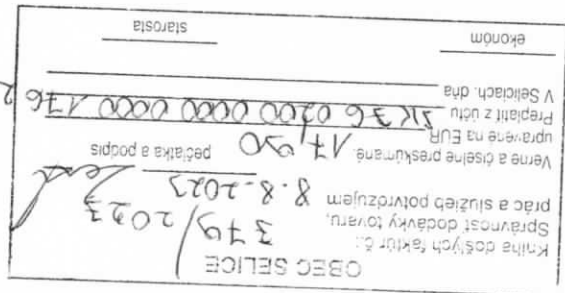 OBEC SELICE
Kniha došlých faktúr č.: 379/2023
Správnosť dodávky tovaru,
prác a služieb potvrdzujem 8.8.2023
pečiatka a podpis
Verne a číselne preskúmané,
upravené na EUR 17,90
Preplatiť z účtu SK36 0200 0000 0000 176
V Seliciach, dňa
ekonóm starosta